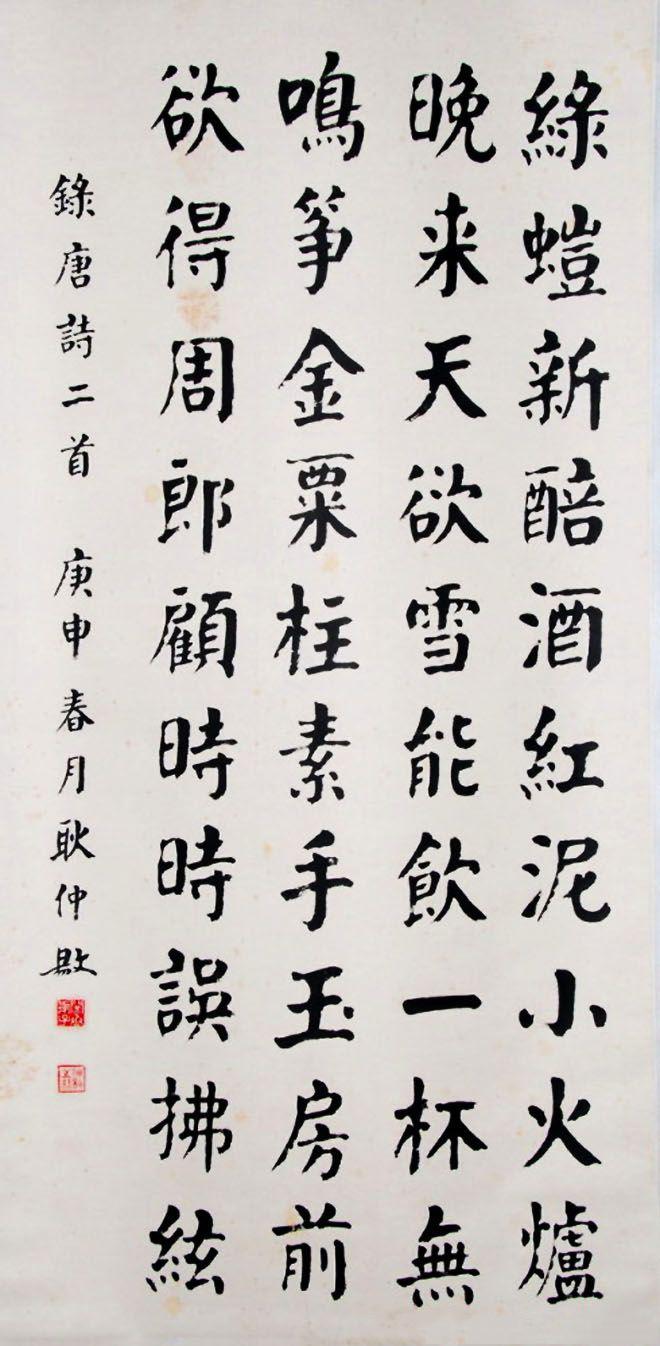 綠螘新醅酒紅泥小火爐
晚来天欲雪能飲一杯無
鳴筝金粟柱素手玉房前
欲得周郎顧時時誤拂絃
錄唐詩二首 庚申春月耿仲敭